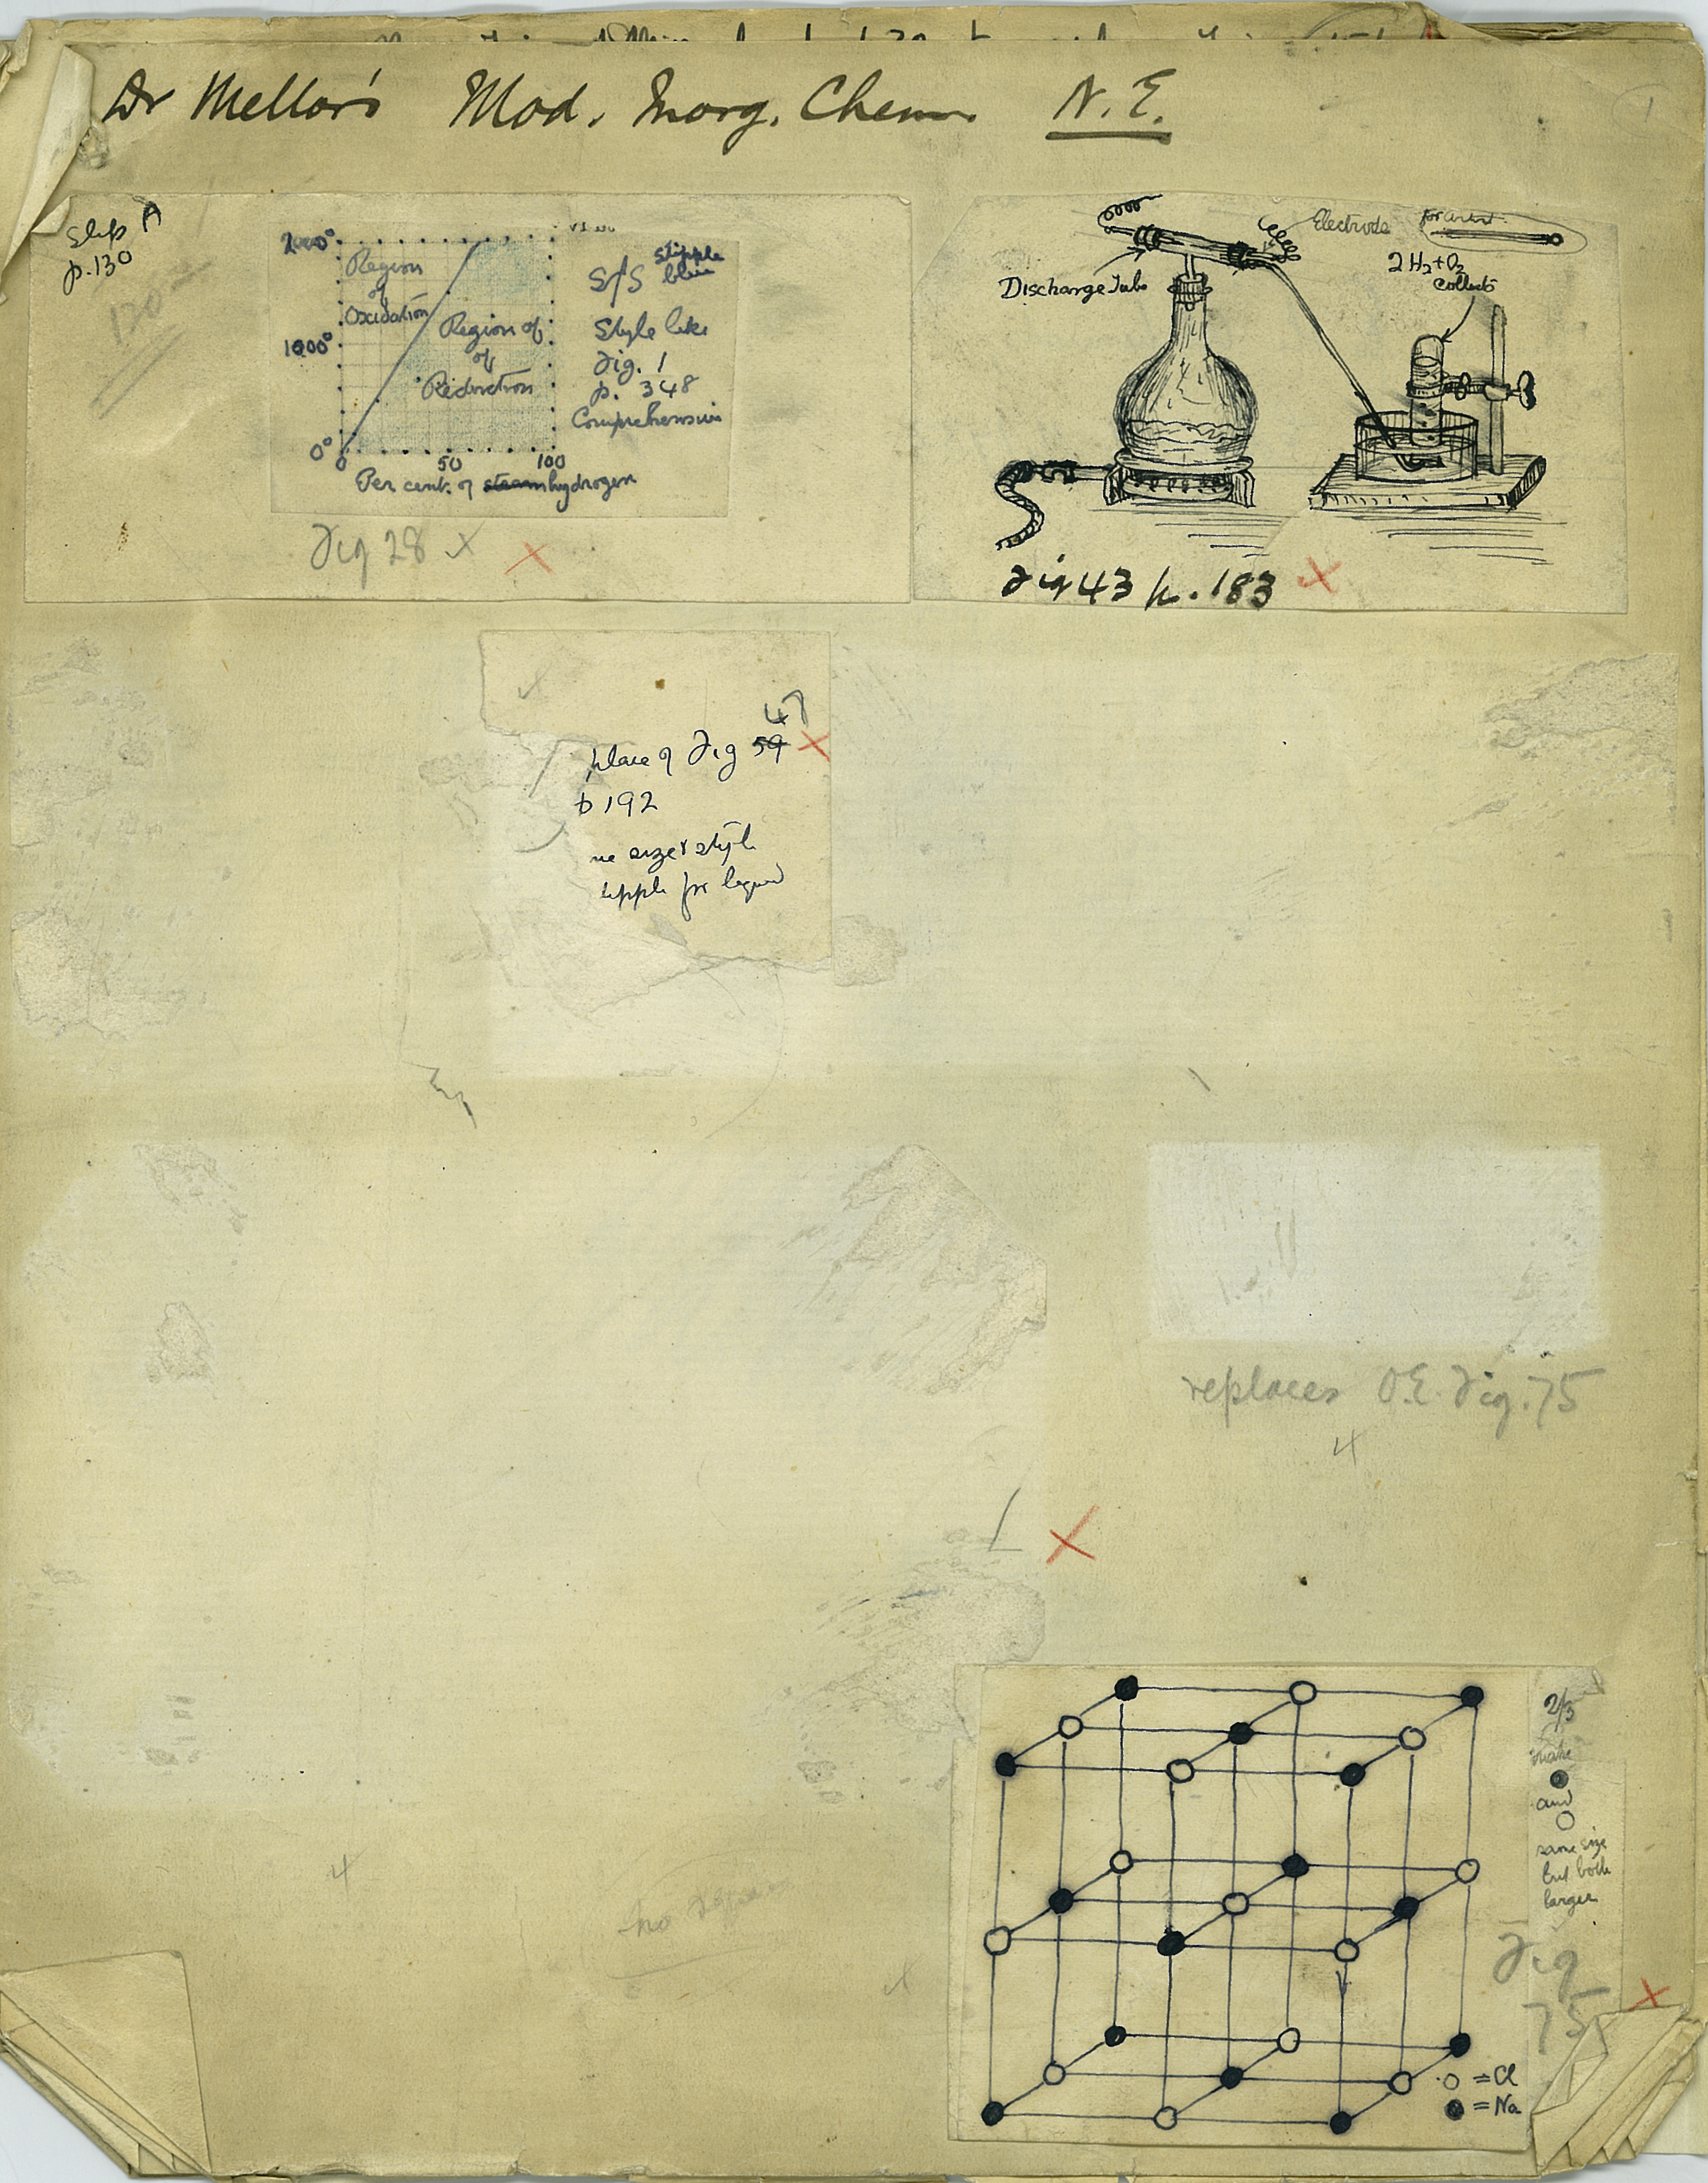 Dr Mellor's Mod. Inorg. Chem. N.E.
1
Slip A
p. 130
130
2000°
1000°
0°
0 50 100
Region
of
Oxidation
Region of
of
Reduction
Per cent. of steam hydrogen
S/S stipple
blue
Style like
Fig. 1
p. 348
Comprehensive
Fig 28 x
Electrode
Discharge Tube
2H2+O2
collects
Fig 43 p. 183
47
place of Fig 59
p 192
size & style
for liquid
replaces O.E. Fig. 75
2/3
make
and
same size
but both
larger
Fig
75
= Cl
= Na